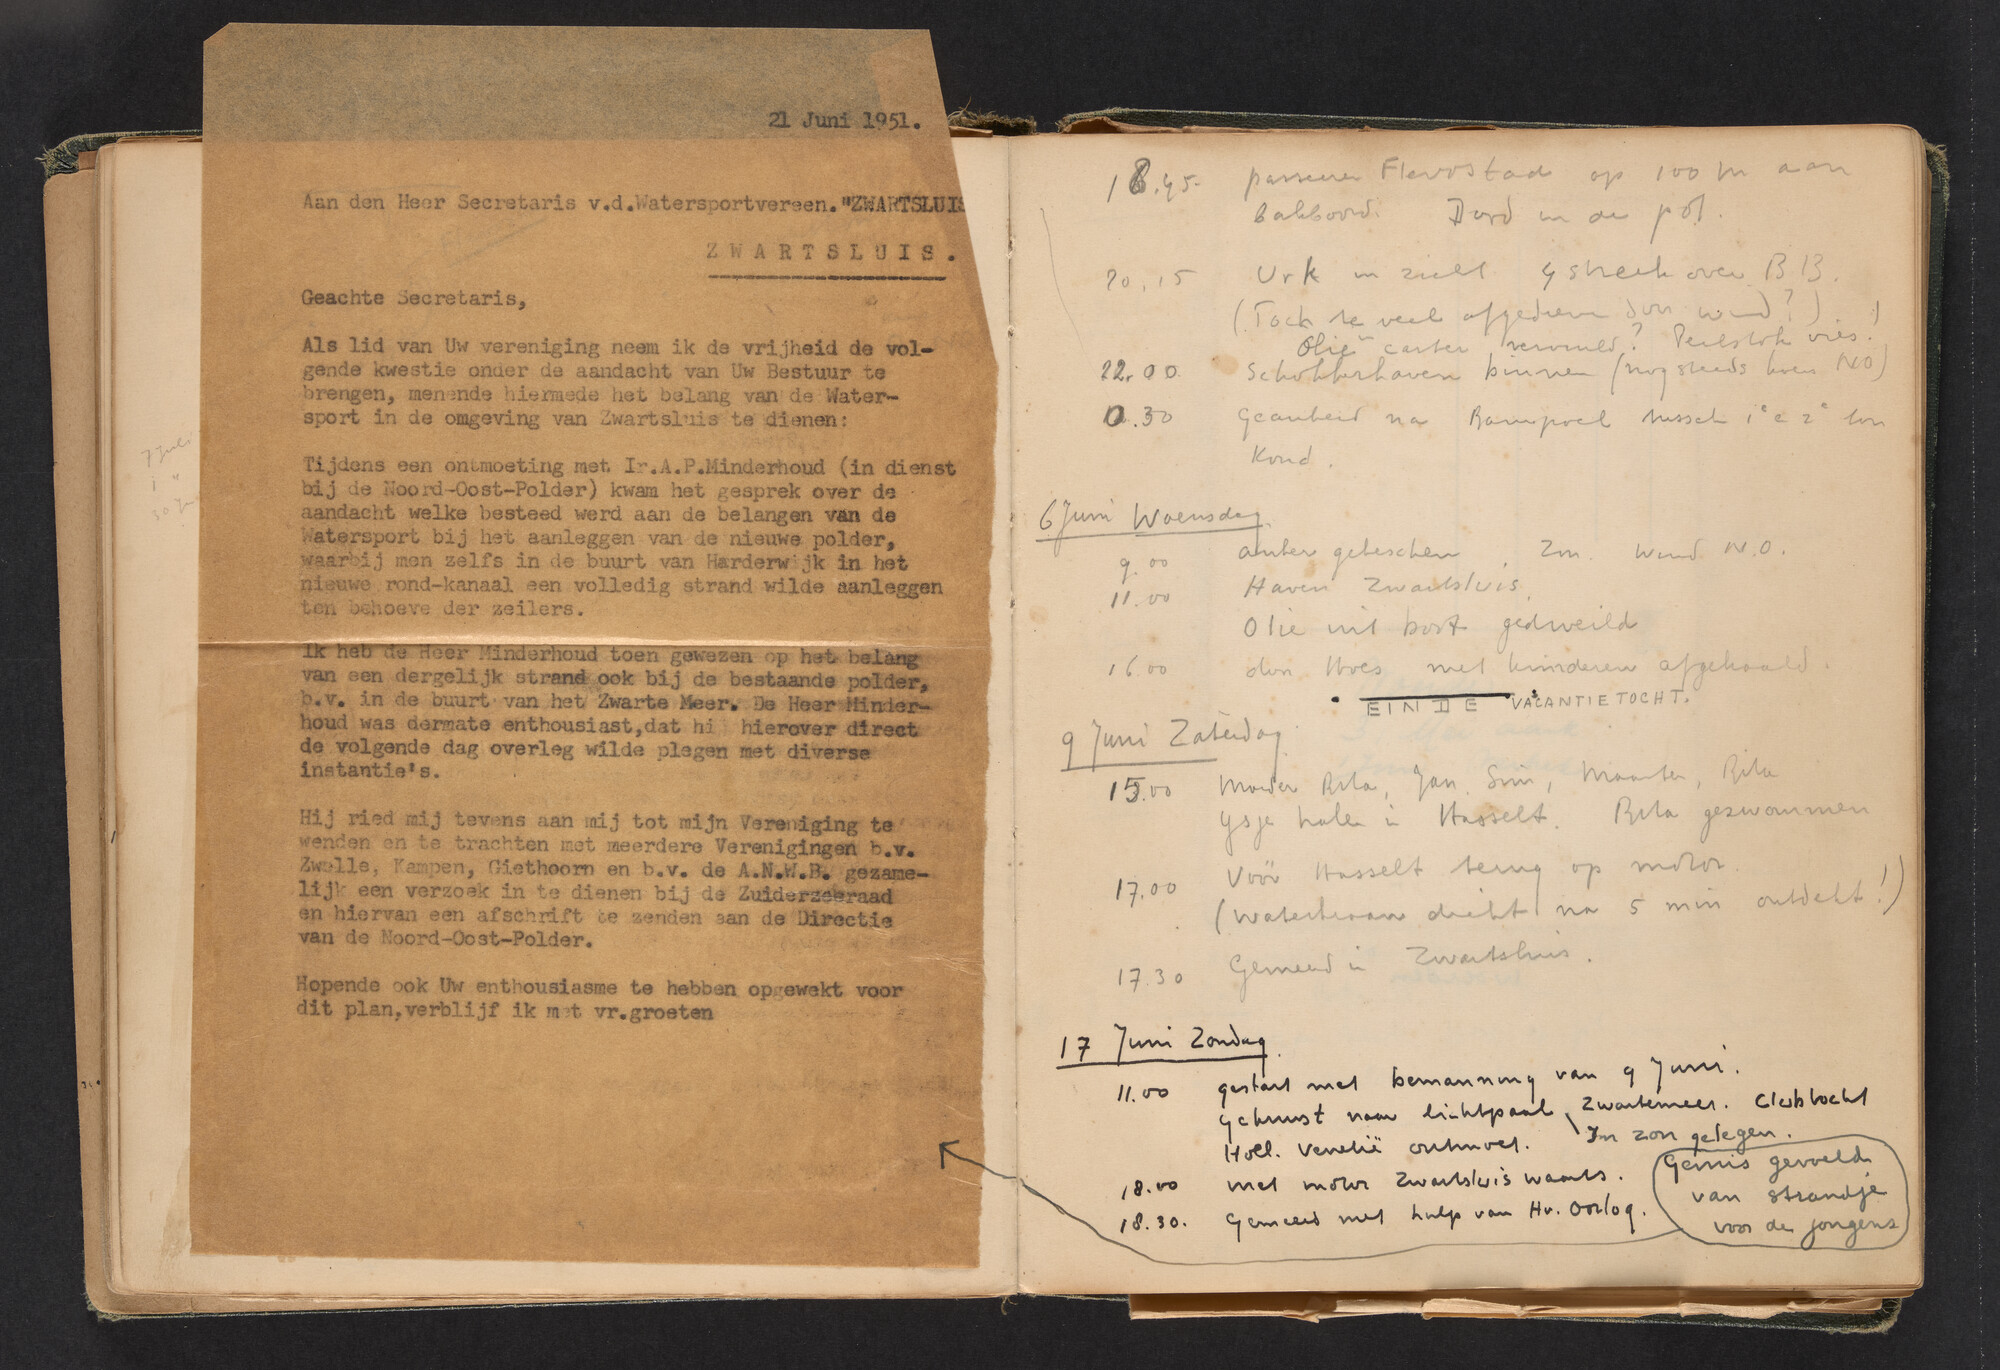 21 Juni 1951.
Aan den Heer Secretaris v.d.Watersportvereen."ZWARTSLUIS
ZWARTSLUIS.
Geachte Secretaris,
Als lid van Uw vereniging neem ik de vrijheid de vol-
gende kwestie onder de aandacht van Uw Bestuur te
brengen, menende hiermede het belang van de Water-
sport in de omgeving van Zwartsluis te dienen:
Tijdens een ontmoeting met Ir.A.P.Minderhoud (in dienst
bij de Noord-Oost-Polder) kwam het gesprek over de
aandacht welke besteed werd aan de belangen van de
Watersport bij het aanleggen van de nieuwe polder,
waarbij men zelfs in de buurt van Harderwijk in het
nieuwe rond-kanaal een volledig strand wilde aanleggen
ten behoeve der zeilers.
Ik heb de Heer Minderhoud toen gewezen op het belang
van een dergelijk strand ook bij de bestaande polder,
b.v. in de buurt van het Zwarte Meer. De Heer Minder-
houd was dermate enthousiast,dat hi hierover direct
de volgende dag overleg wilde plegen met diverse
instantie's.
Hij ried mij tevens aan mij tot mijn Vereniging te
wenden en te trachten met meerdere Verenigingen b.v.
Zwolle, Kampen, Giethoorn en b.v. de A.N.W.B. gezame-
lijk een verzoek in te dienen bij de Zuiderzeeraad
en hiervan een afschrift te zenden aan de Directie
van de Noord-Oost-Polder.
Hopende ook Uw enthousiasme te hebben opgewekt voor
dit plan,verblijf ik met vr.groeten
7 Juli
18.45. passeren Flevostad op 100 m aan
bakboord. Dord in de pot.
20.15 Urk in zicht 4 streek over B B.
(Toch te veel afgedreven door wind?)!
Olie carter vervuild? Peilstok vies!
22.00 Schokkerhaven binnen (nog steeds hoev NO)
0.30 Geankerd na Rampoel tussch 1e e 2e ton
Koud.
6 Juni Woensdag
9.00 anker gelischen Zm. wind N.O.
11.00 Haven Zwartsluis.
Olie uit boot gedweild
16.00 door Hoes met kinderen afgehaald.
EINDE VACANTIETOCHT.
9 Juni Zaterdag
15.00 Moeder Rita, Jan, Sim, Maarten, Rita
ijsje halen in Hasselt. Rita gezwommen
17.00 Vóór Hasselt terug op motor.
(Waterkraan dicht na 5 min ontdekt!)
17.30 Gemeerd in Zwartsluis.
17 Juni Zondag
11.00 gestart met bemanning van 9 Juni.
Gekruist naar lichtpaal Zwartemeer. Clubtocht
Holl. Venetië ontmoet. In zon gelegen.
18.00 met motor Zwartsluis waarts.
18.30. Gemeerd met hulp van Hr. Oorlog.
Gemis gevoeld
van strandje
voor de jongens